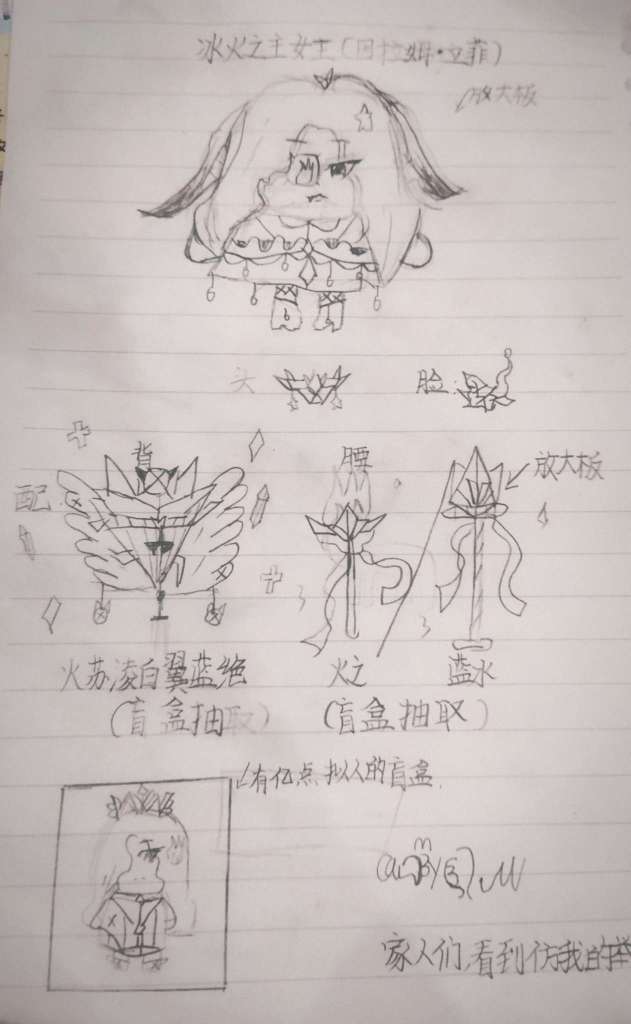 冰火之主女王(田拉姆·立菲)
放大板
头
脸
背
配
腰
放大板
火苏凌白翼蓝绝
火之
蓝水
(盲盒抽取)
(盲盒抽取)
有亿点拟人的盲盒
家人们,看到仿我的举